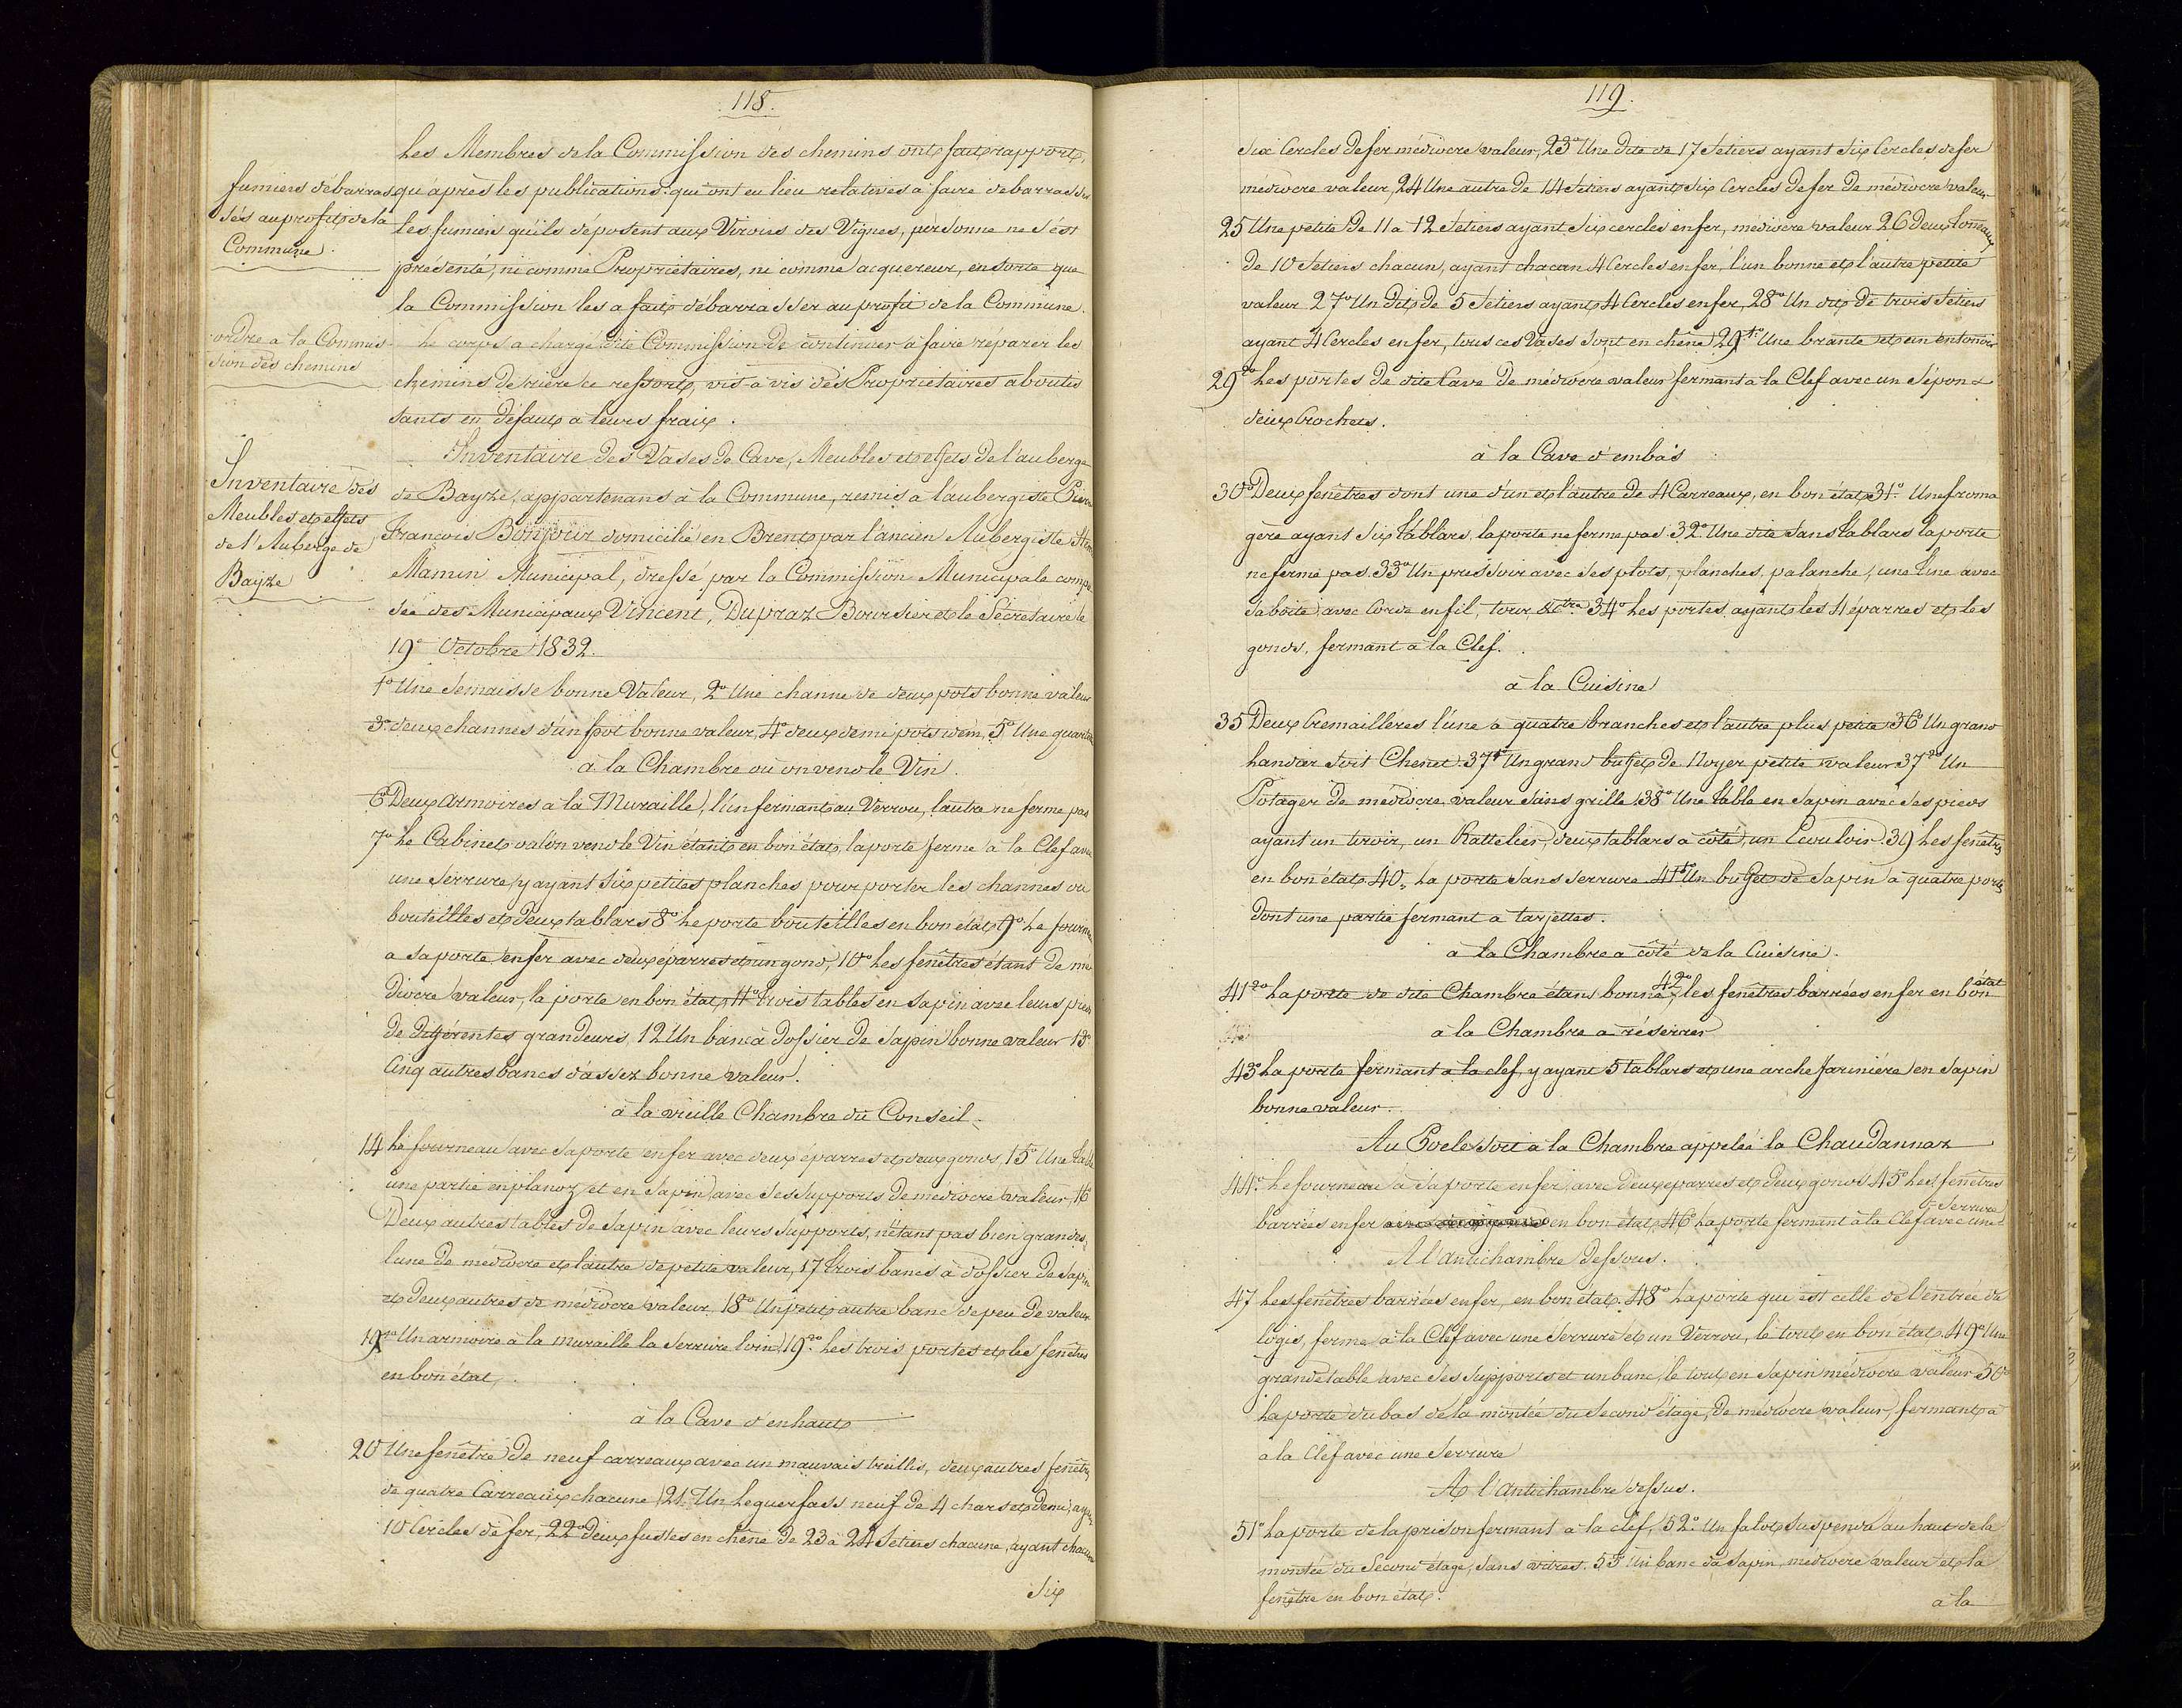 118.
Les Membres de la Commission des chemins ont fait rapport,
fumiers débarras
sés au profit de la
Commune.
qu'après les publications qui ont eu lieu relatives à faire débarrasser
les fumiers qu'ils déposent aux Virous des Vignes, personne ne s'est
présenté, ni comme Propriétaires, ni comme acquereur, en sorte que
la Commission les a fait débarrasser au profit de la Commune.
ordre a la Commis
sion des chemins
Le corps a chargé dite Commission de continuer à faire réparer les
chemins derrière ce ressort, vis-à-vis des Propriétaires aboutis
sants en défaut a leurs fraix.
Inventaire des
Meubles et effets
de l'Auberge de
Bayze
Inventaire des Vases de Cave, Meubles et effets de l'auberge
de Bayze, appartenans à la Commune, remis a l'aubergiste Pierre
François Bonjour domicilié en Brent par l'ancien Aubergiste
Mamin Municipal, dressé par la Commission Municipale compo
sée des Municipaux Vincent, Dupraz Boursier et le Secretaire le
19e Octobre 1832.
1o Une Semaisse bonne Valeur, 2o Une channe de deux pots bonne valeur
3o deux channes d'un pot bonne valeur, 4o deux demi pots idem, 5o Une quartette
à la Chambre où on vend le Vin.
6o Deux Armoires à la Muraille, l'un fermant au Verrou, l'autre ne ferme pas
7o Le Cabinet où l'on vend le Vin étant en bon état, la porte ferme à la Clef avec
une Serrure, y ayant Six petites planches pour porter les channes ou
bouteilles et deux tablars 8o Le porte bouteilles en bon état 9o Le fourneau
a sa porte en fer avec deux éparres et un gond, 10o Les fenêtres étant de mé
diocre valeur, la porte en bon état, 11o trois tables en Sapin avec leurs pieds
de différentes grandeurs, 12 Un banc à dossier de Sapin bonne valeur 13o
Cinq autres bancs d'assez bonne valeur.
à la vieille Chambre du Conseil.
14 Le fourneau avec sa porte en fer avec deux éparres et deux gonds, 15o Une table
une partie en planoz et en Sapin avec ses Supports de médiocre valeur, 16
Deux autres tables de Sapin avec leurs Supports, n'étant pas bien grandes,
l'une de médiocre et l'autre de petite valeur, 17 trois bancs à dossier de Sapin
et deux autres de médiocre valeur 18o Un petit autre banc de peu de valeur
19 1o Un armoire à la muraille la Serrure loin, 19 2o Les trois portes et les fenêtres
en bon état,
à la Cave d'enhaut
20 Une fenêtre de neuf carreaux avec un mauvais treillis, deux autres fenêtres
de quatre Carreaux chacune 21. Un Leguerfass neuf de 4 chars et demi, ayant
10 Cercles de fer, 22o deux fustes en chêne de 23 a 24 Setiers chacune, ayant chacune
Six
119.
Six Cercles de fer médiocre valeur, 23o Une dite de 17 Setiers ayant Six Cercles de fer
médiocre valeur, 24 Une autre de 14 Setiers ayant Six Cercles de fer de médiocre valeur
25 Une petite de 11 a 12 Setiers ayant Six cercles en fer, médiocre valeur 26 deux tonneaux
de 10 Setiers chacun, ayant chacun 4 Cercles en fer, l'un bonne et l'autre petite
valeur 27o Un dit de 5 Setiers ayant 4 Cercles en fer, 28o Un dit de trois Setiers
ayant 4 Cercles en fer, tous ces Vases sont en chêne 29 1o Une brante et un entonnoir
29 2o Les portes de dite Cave de médiocre valeur fermant à la Clef avec un
deux Crochets.
à la Cave d'embas
30o Deux fenêtres dont une d'un et l'autre de 4 Carreaux, en bon état 31o Une froma
gère ayant Six tablars, la porte ne ferme pas. 32o Une dite Sans tablars la porte
ne ferme pas. 33o Un pressoir avec ses plots, planches, palanche, une Tine avec
sa boite avec Corde en fil, tour, 34o Les portes ayant les 4 éparres et les
gonds, fermant à la Clef.
à la Cuisine
35 Deux Cremaillères l'une à quatre branches et l'autre plus petite 36o Un grand
landier Soit Chenet 37 1o Un grand buffet de Noyer petite valeur 37 2o Un
Potager de médiocre valeur Sans grille 38o Une table en Sapin avec ses pieds
ayant un tiroir, un Rattelier, deux tablars a côté, un Ecouloir. 39 Les fenêtres
en bon état 40. La porte Sans serrure 41 1o Un buffet de Sapin à quatre portes
dont une partie fermant a targettes.
à la Chambre a côté de la Cuisine.
41 2o La porte de dite Chambre étans bonne, 42o les fenêtres barrées en fer en bon état
à la Chambre a réserrer
43o La porte fermant à la clef, y ayant 5 tablars et une arche farinière en Sapin
bonne valeur.
Au Poele soit à la Chambre appelée la Chaudannaz
44o Le fourneau à sa porte en fer, avec deux éparres et deux gonds 45o Les fenêtres
barrées en fer en bon état, 46o La porte fermant à la Clef avec une Serrure
A l'Antichambre dessous.
47 Les fenêtres barrées en fer, en bon état. 48o La porte qui est celle de l'entrée du
logis, ferme à la Clef avec une Serrure et un Verrou, le tout en bon état. 49o Une
grande table avec ses Supports et un banc, le tout en Sapin médiocre valeur 50o
La porte du bas de la montée du Second étage, de médiocre valeur, fermant à
à la Clef avec une Serrure
A l'Antichambre dessus.
51o La porte de la prison fermant à la clef, 52o Un falot suspendu au haut de la
montée du Second étage, Sans vitres. 53o Un banc de Sapin, médiocre valeur et la
fenêtre en bon état.
à la